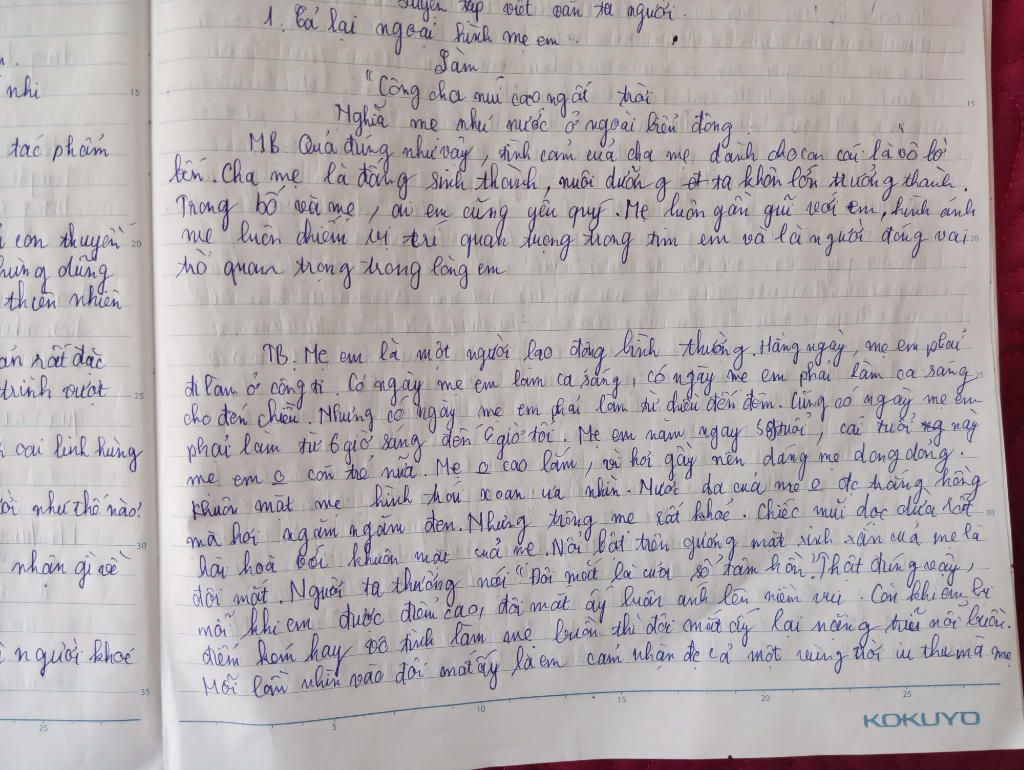 Luyện tập viết văn tả người.
1. Tả lại ngoại hình mẹ em.
Làm
"Công cha núi cao ngất trời
Nghĩa mẹ như nước ở ngoài biển đông.
MB. Quả đúng như vậy, tình cảm của cha mẹ dành cho con cái là vô bờ
bến. Cha mẹ là đấng sinh thành, nuôi dưỡng ta khôn lớn trưởng thành.
Trong bố và mẹ, ai em cũng yêu quý. Mẹ luôn gần gũi với em, hình ảnh
mẹ luôn chiếm vị trí quan trọng trong tim em và là người đóng vai
trò quan trọng trong lòng em
TB. Mẹ em là một người lao động bình thường. Hàng ngày, mẹ em phải
đi làm ở công ti. Có ngày mẹ em làm ca sáng, có ngày mẹ em phải làm ca sáng
cho đến chiều. Nhưng có ngày mẹ em phải làm từ chiều đến đêm. Cũng có ngày mẹ em
phải làm từ 6 giờ sáng đến 6 giờ tối. Mẹ em năm nay tuổi, cái tuổi này
mẹ em o còn trẻ nữa. Mẹ o cao lắm, vì hơi gầy nên dáng mẹ dong dỏng.
Khuôn mặt mẹ hình trái xoan ưa nhìn. Nước da của mẹ o đc trắng hồng
mà hơi ngăm ngăm đen. Nhưng trông mẹ rất khoẻ. Chiếc mũi dọc dừa rất
hài hoà với khuôn mặt của mẹ. Nổi bật trên gương mặt xinh xắn của mẹ là
đôi mắt. Người ta thường nói "Đôi mắt là cửa sổ tâm hồn". Thật đúng vậy,
mỗi khi em được điểm cao, đôi mắt ấy luôn ánh lên niềm vui. Còn khi em bị
điểm kém hay vô tình làm mẹ buồn thì đôi mắt ấy lại nặng trĩu nỗi buồn.
Mỗi lần nhìn vào đôi mắt ấy là em cảm nhận đc cả một vùng trời ưu thư mà mẹ
nhi
tác phẩm
con thuyền
thiên nhiên
rất đặc
vai linh hùng
như thế nào?
nhân gì về
người khoẻ
15
20
25
30
35
25
15
20
25
30
5
10
15
20
25
KOKUYO